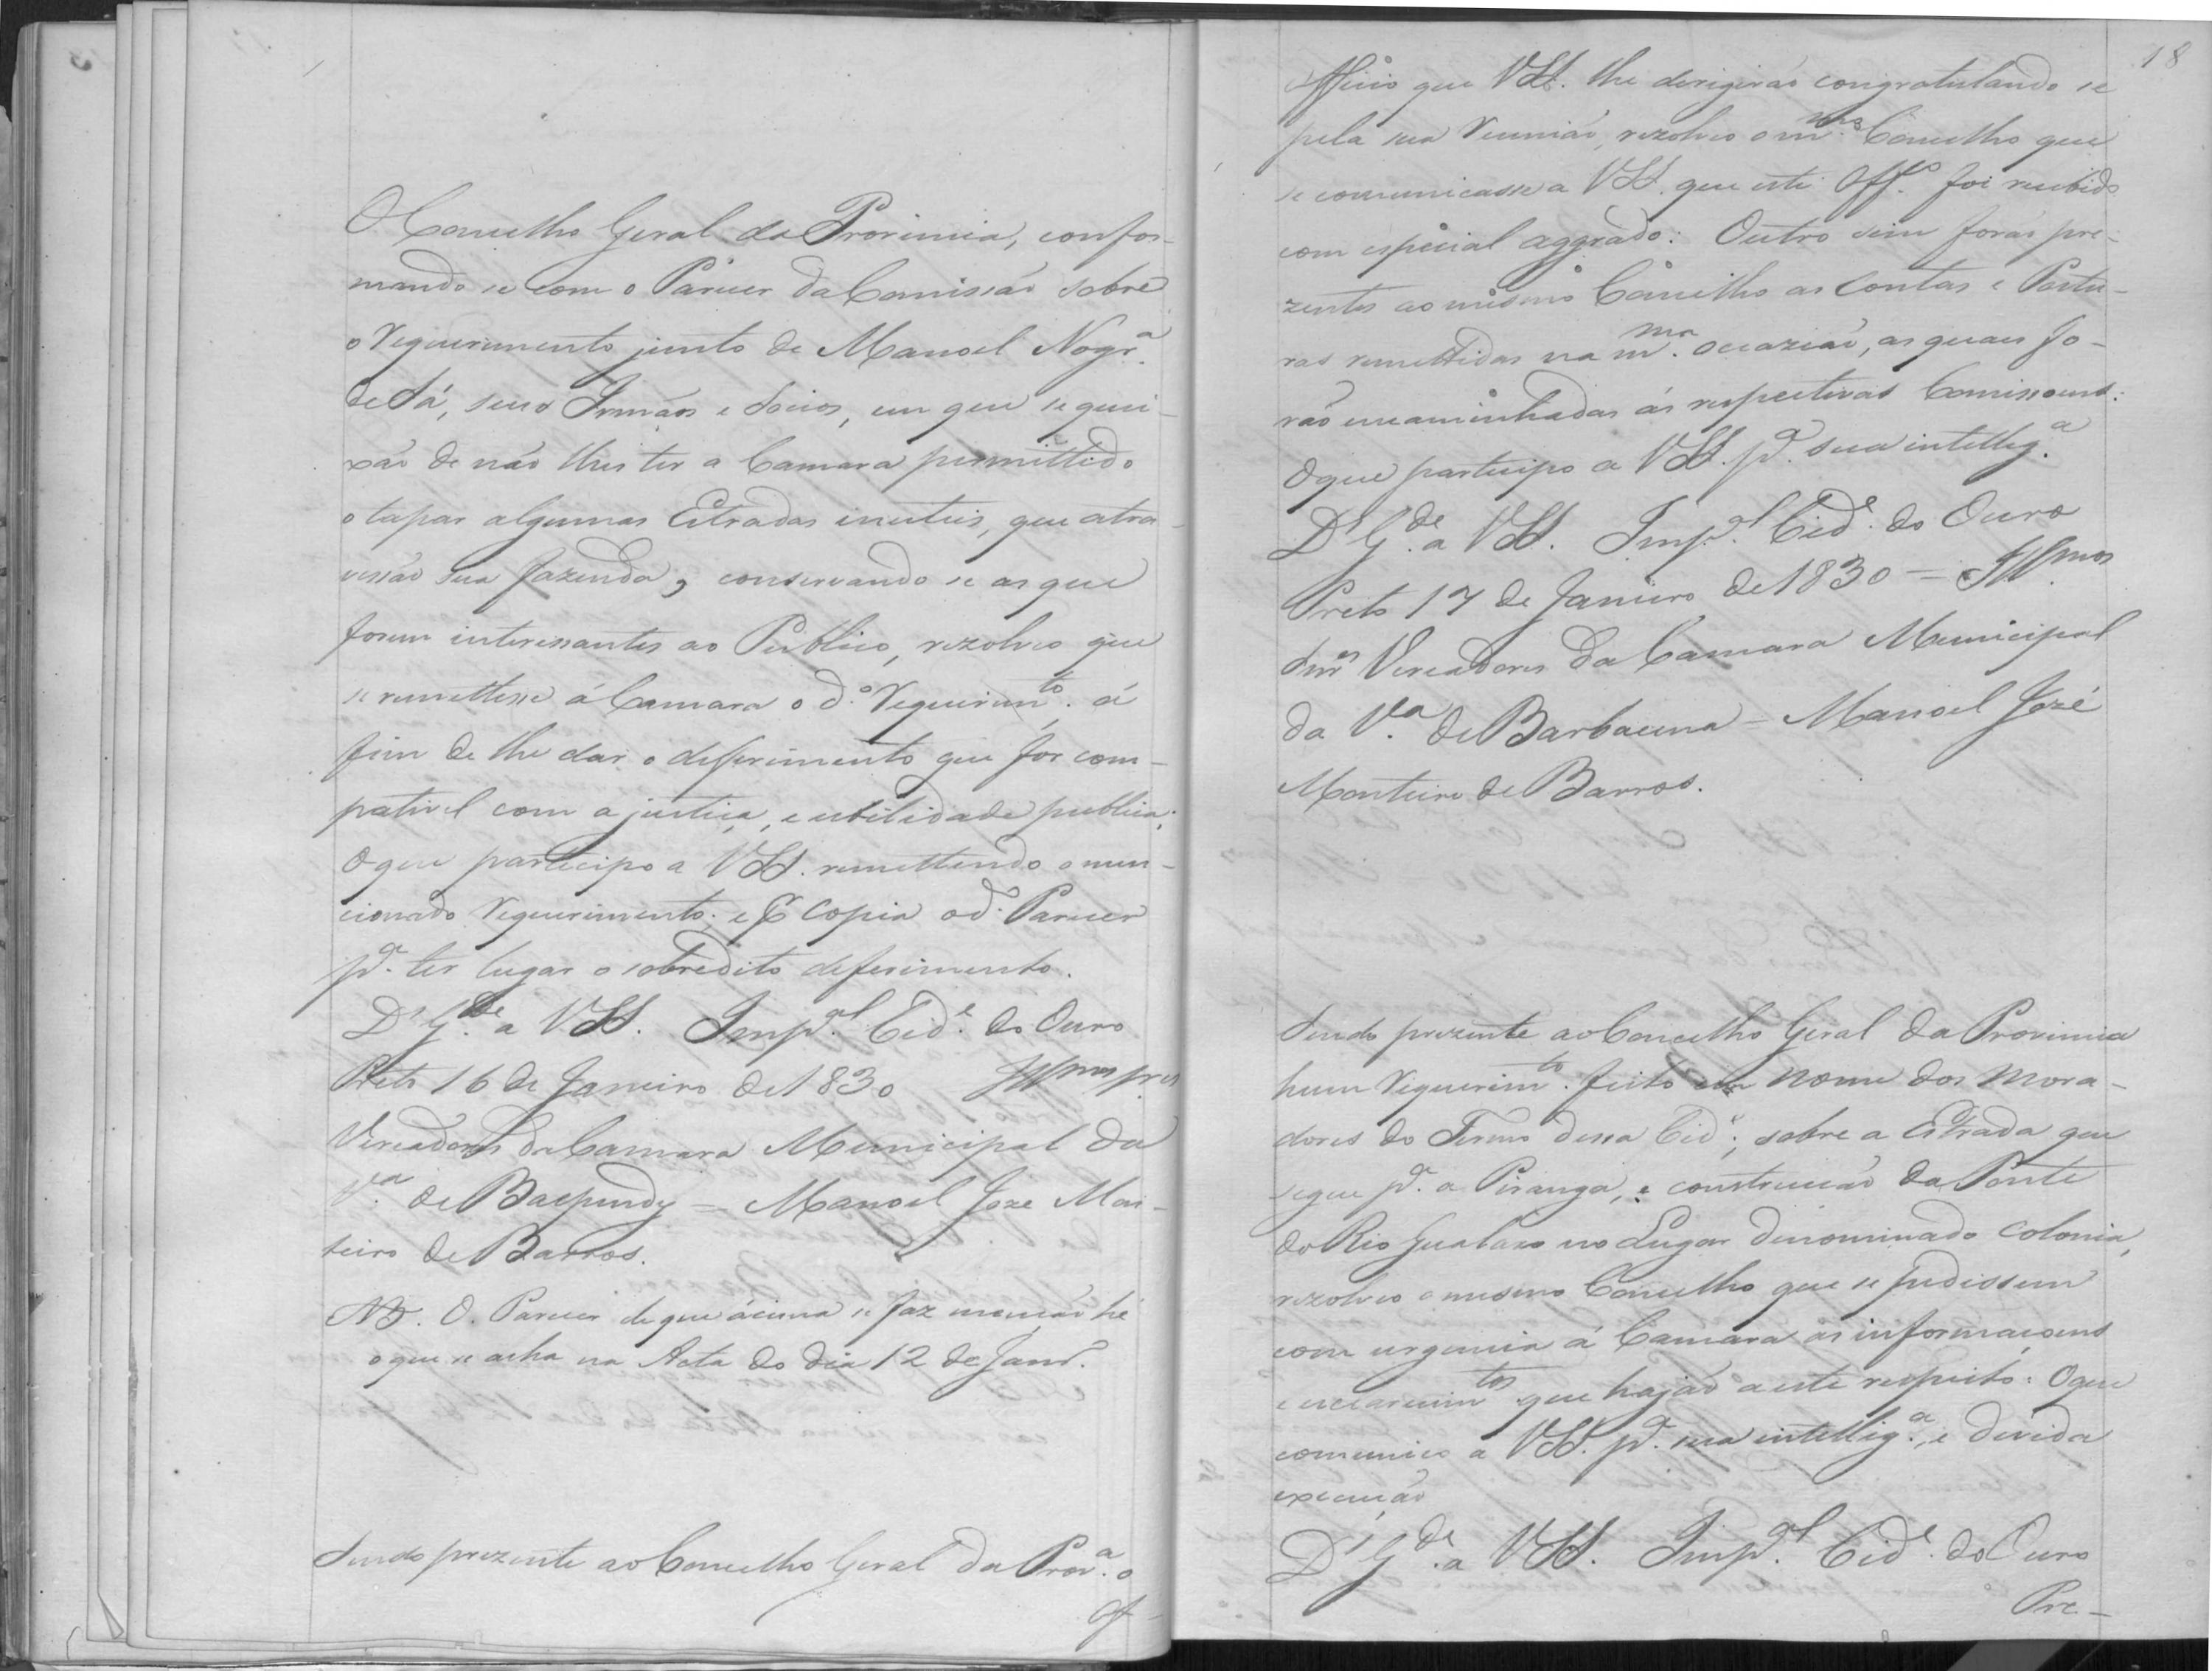 O Concelho Geral da Provincia, confor-
mando se com o Parecer da Comissão sobre
o Requerimento junto de Manoel Nogr.ª
de Sá, seus Irmãos e Socios, em que se quei-
xão de não lhes ter a Camara permittido
o tapar algumas Estradas inuteis, que atra-
vessão sua fazenda, conservando se as que
forem interessantes ao Publico, rezolveo que
se remettesse á Camara o d.º Requerim.to á
fim de lhe dar o deferimento que for com-
pativel com a justiça, e utilidade publica;
O que participo a VSS. remettendo o men-
cionado Requerimento, e por Copia o d.º Parecer
p.ª ter lugar o sobredito deferimento.
D.s G.de a VSS. Imp.al Cid.e do Ouro
Preto 16 de Janeiro de 1830 Ill.mos
Vereadores da Camara Municipal da
V.ª de Baependy = Manoel Joze Mon-
teiro de Barros.
NB. O Parecer de que ácima se faz menção hé
o que se acha na Acta do dia 12 de Janr.º
Sendo prezente ao Concelho Geral da Prov.ª o
of-
18
officio que VSS. lhe derigirão congratulando se
pela sua Reunião, rezolveo o m.mo Concelho que
se comunicasse a VSS. que este Off.co foi recebido
com especial aggrado: Outro sim forão pre-
zentes ao mesmo Concelho as Contas e Postu-
ras remettidas na m.ma occazião, as quais fo-
rão encaminhadas ás respectivas Comissoens:
O que participo a VSS. p.ª sua intellig.ª
D.s G.de a VSS. Imp.al Cid.e do Ouro
Preto 17 de Janeiro de 1830 = Ill.mos
Snr.es Vereadores da Camara Municipal
da V.ª de Barbacena = Manoel Jozé
Monteiro de Barros.
Sendo prezente ao Concelho Geral da Provincia
hum Requerim.to feito em nome dos mora-
dores do Termo dessa Cid.e, sobre a Estrada que
segue p.ª a Piranga, e construcção da Ponte
do Rio Gualaxo no Lugar denominado Colonia,
rezolveo o mesmo Concelho que se pedissem
com urgencia á Camara as informaçoens
e esclarecim.tos que hajão a este respeito: O que
comunico a VSS. p.ª sua intellig.ª, e devida
execução
D.s G.de a VSS. Imp.al Cid.e do Ouro
Pre-